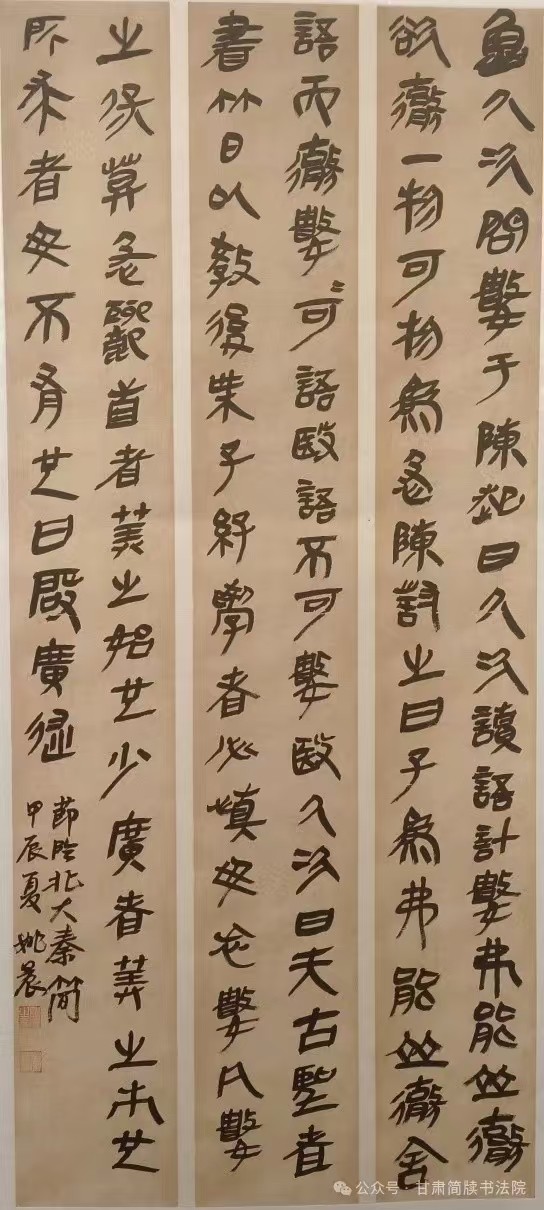 魯久次問數于陳起曰久次讀語計數弗能並徹
欲徹一物可物為急陳對之曰子為弗能並徹舍
語而徹數=可語殹語不可數殹久次曰夫古聖者
書竹白以教後枼子孫學者必慎毋忘數凡數
之保莫急酈首者筭之始也少廣者筭之市也
所求者毋不有也曰殿廣
節臨北大秦簡
甲辰夏 姚晨
公众号 · 甘肃简牍书法院